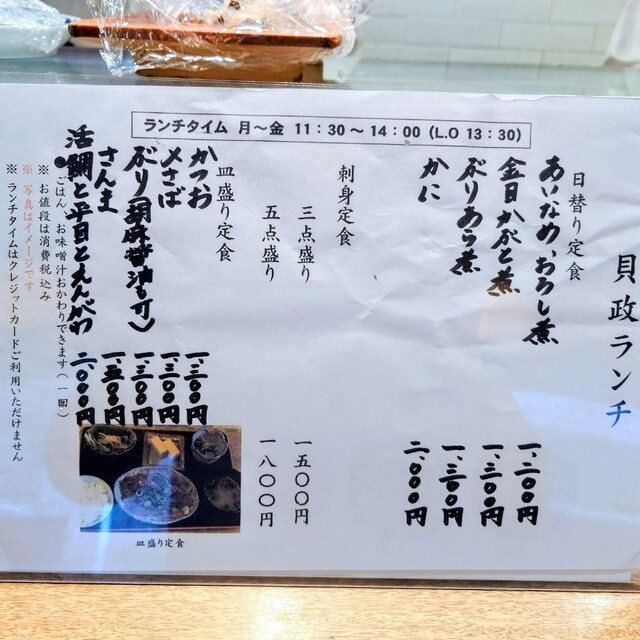 貝政ランチ
ランチタイム 月～金 11：30～14：00（L.O 13：30）
日替り定食
あいなめ、おろし煮 一、二〇〇円
金目かぶと煮 一、三〇〇円
ぶりあら煮 一、三〇〇円
かに 二、〇〇〇円
刺身定食
三点盛り 一五〇〇円
五点盛り 一八〇〇円
皿盛り定食
かつお 一、三〇〇円
〆さば 一、三〇〇円
ぶり（胡麻醤油も可） 一、三〇〇円
さんま 一、五〇〇円
活鯛と平目とえんがわ 二、〇〇〇円
皿盛り定食
ごはん、お味噌汁おかわりできます（一回）
※ お値段は消費税込み
※ 写真はイメージです
※ ランチタイムはクレジットカードご利用いただけません